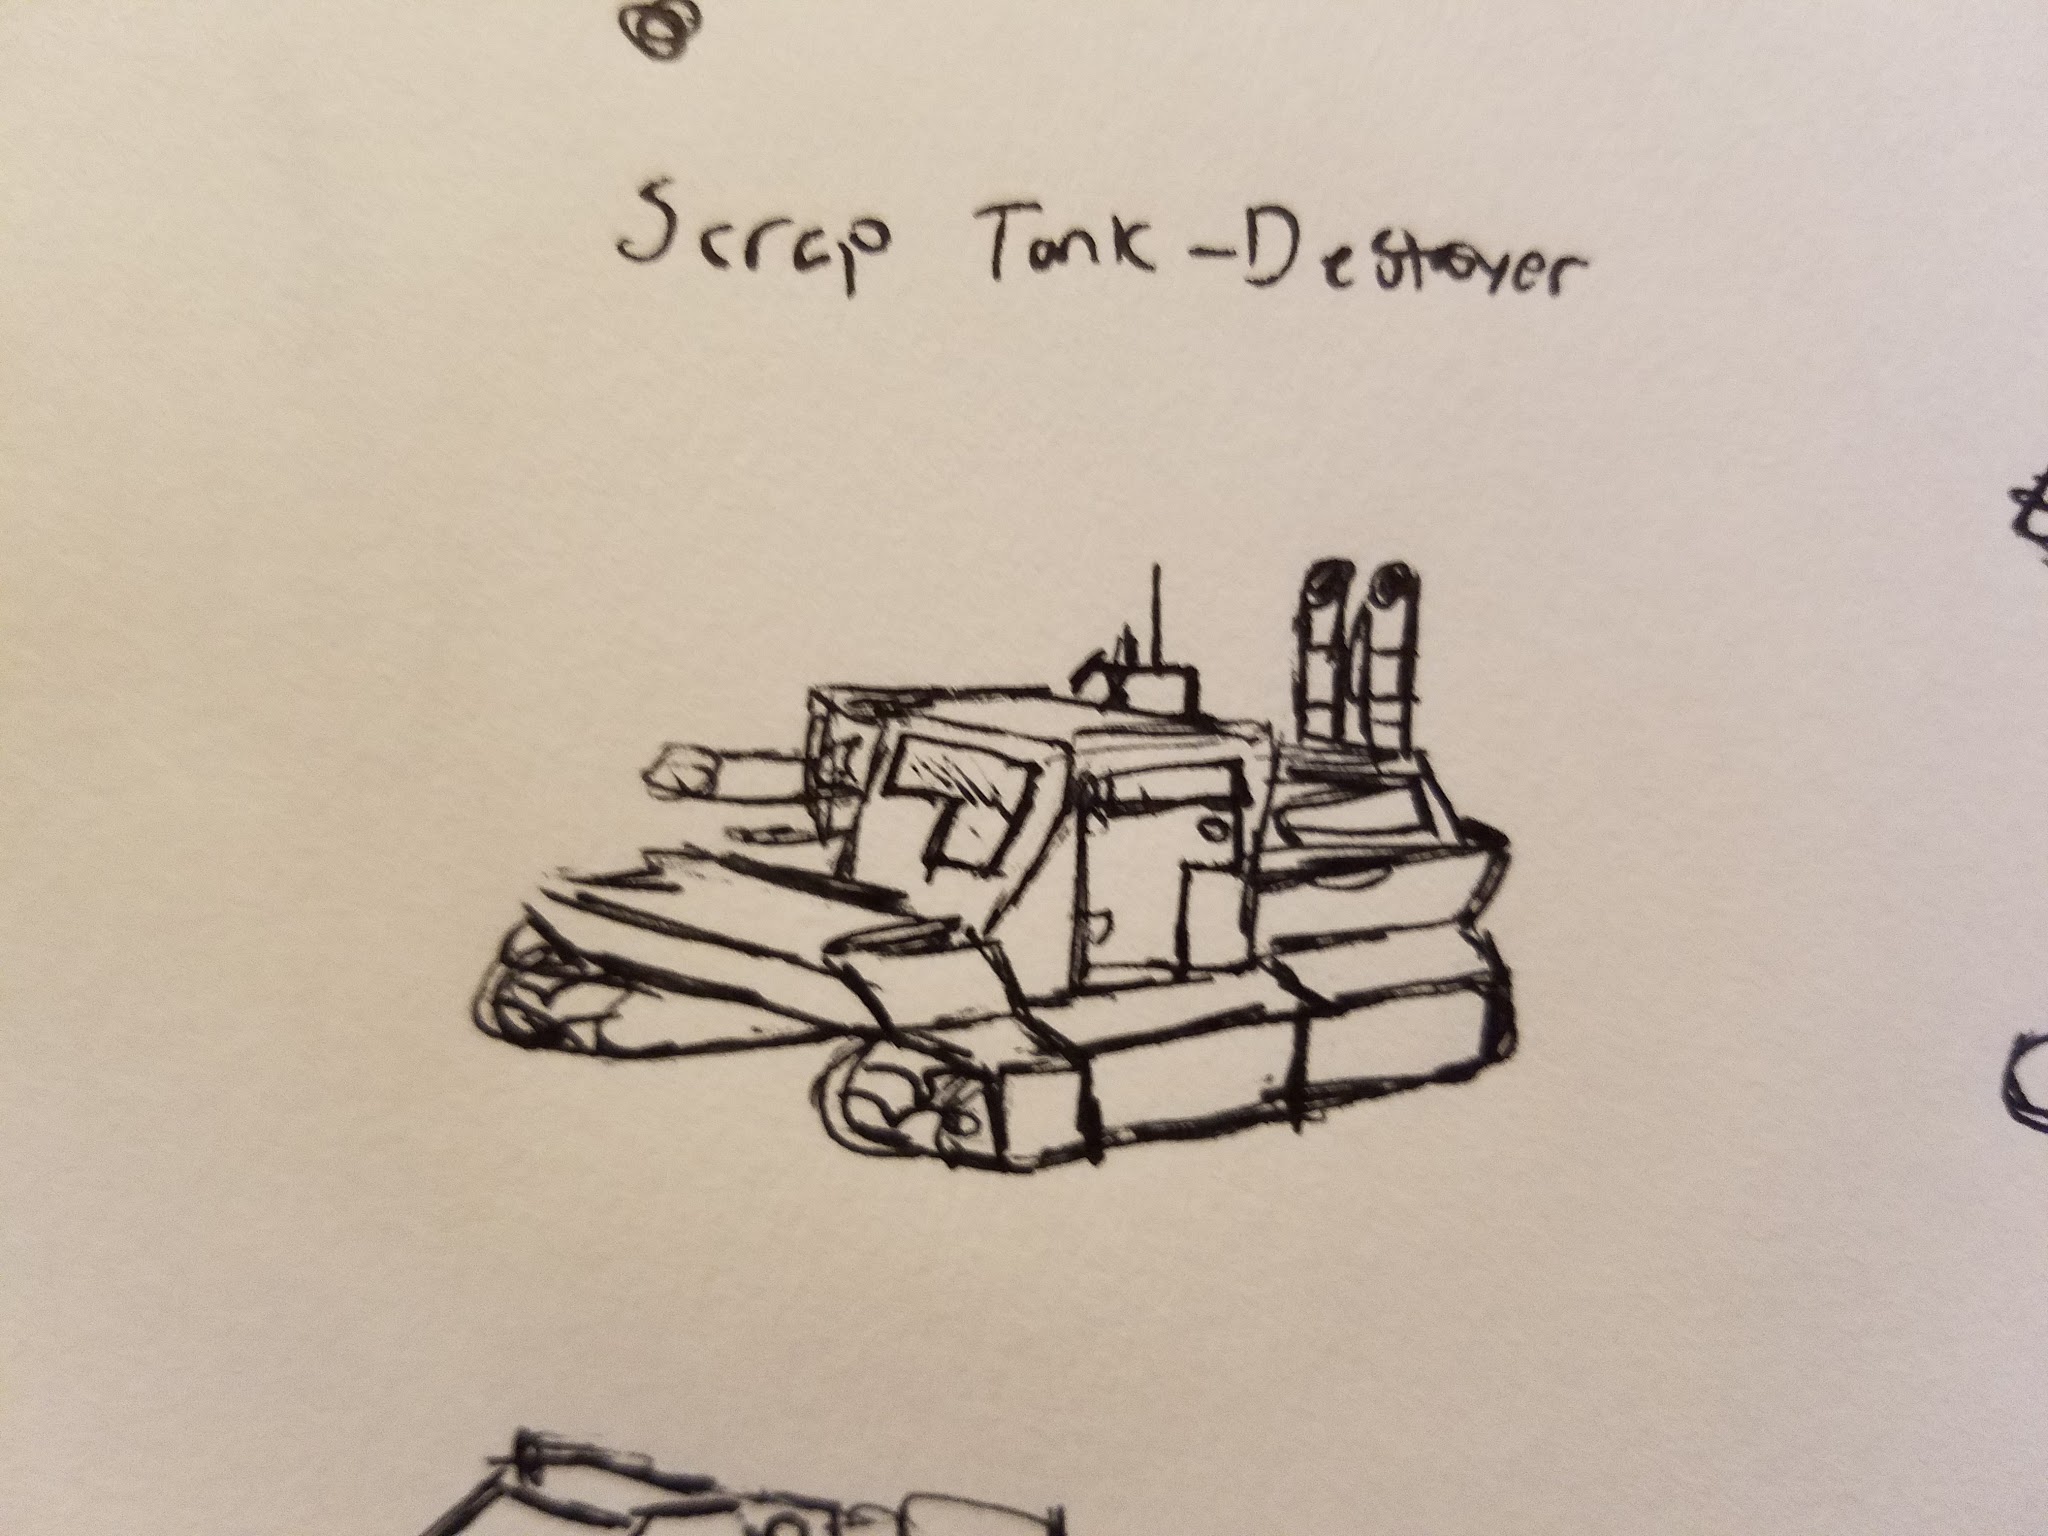 Scrap Tank-Destroyer